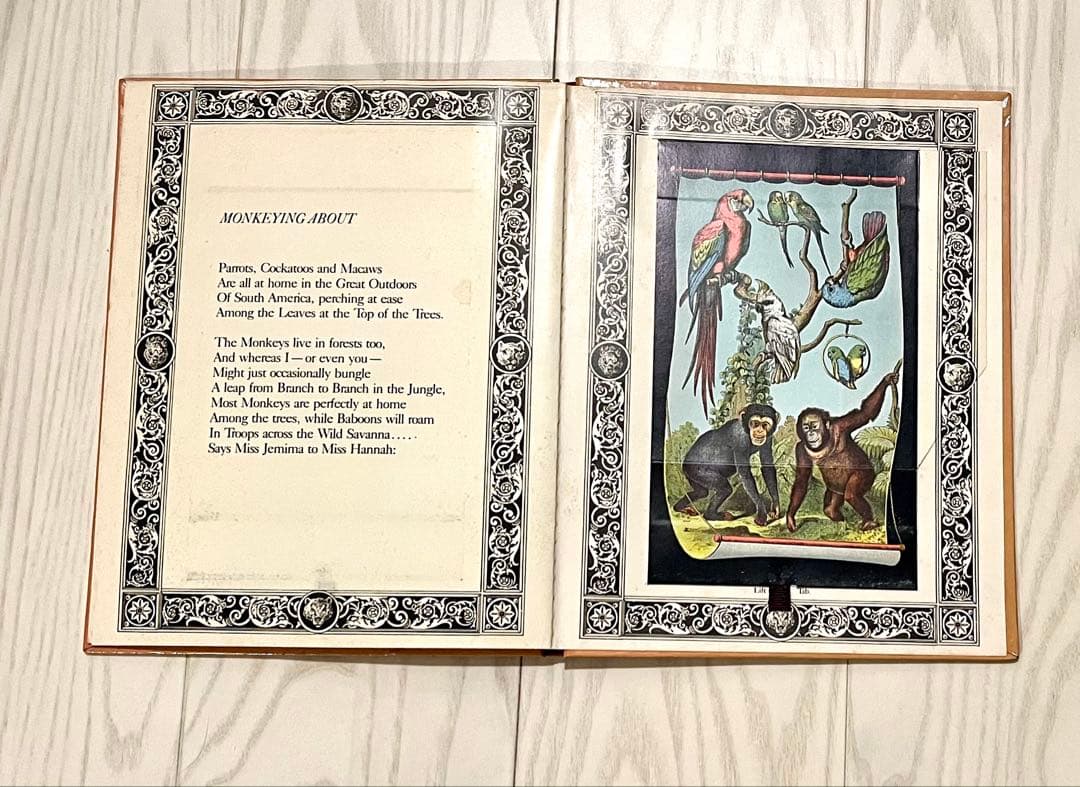 MONKEYING ABOUT
Parrots, Cockatoos and Macaws
Are all at home in the Great Outdoors
Of South America, perching at ease
Among the Leaves at the Top of the Trees.
The Monkeys live in forests too,
And whereas I — or even you —
Might just occasionally bungle
A leap from Branch to Branch in the Jungle,
Most Monkeys are perfectly at home
Among the trees, while Baboons will roam
In Troops across the Wild Savanna....
Says Miss Jemima to Miss Hannah:
Lift Tab